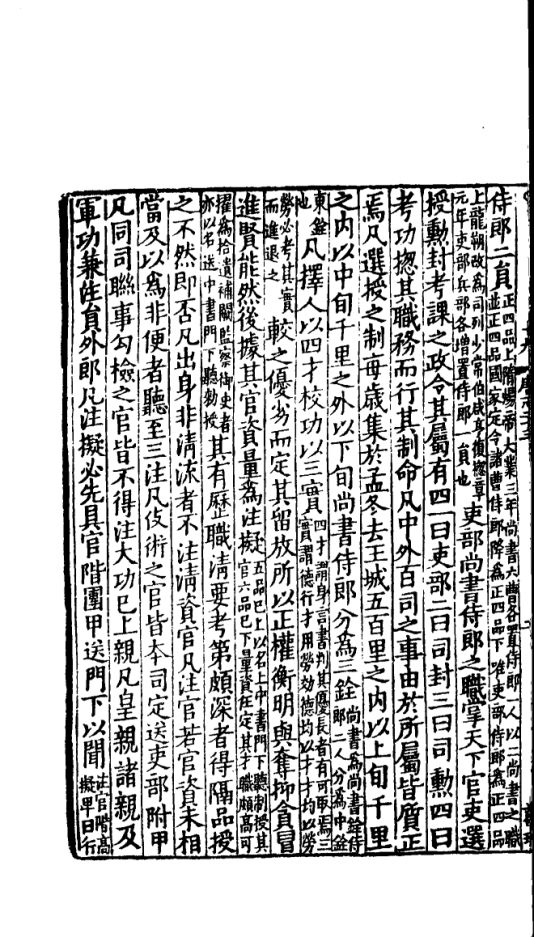 侍郎二員正四品上隋煬帝大業三年尚書六曹各置侍郎一人以二尚書之職並正四品國家定令諸曹侍郎降為正四品下唯吏部侍郎為正四品
上龍朔改為司列少常伯咸亨復揔章元年吏部兵部各增置侍郎一員也吏部尚書侍郎之職掌天下官吏選
授勲封考課之政令其屬有四一曰吏部二曰司封三曰司勲四曰
考功揔其職務而行其制命凡中外百司之事由於所屬皆質正
焉凡選授之制每歲集於孟冬去王城五百里之内以上旬千里
之内以中旬千里之外以下旬尚書侍郎分為三銓尚書為尚書銓侍郎二人分為中銓
東銓也凡擇人以四才校功以三實四才謂身言書判其優長者有可取焉三實謂德行才用勞効德均以才才均以勞
勞必考其實而進退之較之優劣而定其留放所以正權衡明與奪抑貪冒
進賢能然後據其官資量為注擬五品已上以名上中書門下聽制授其官六品已下量資任定其才職頗高可
擢為拾遺補闕監察御史者亦以名送中書門下聽勅授其有歷職清要考第頗深者得隔品授
之不然即否凡出身非清流者不注清資官凡注官若官資未相
當及以為非便者聽至三注凡伎術之官皆本司定送吏部附甲
凡同司聯事勾檢之官皆不得注大功已上親凡皇親諸親及
軍功兼注員外郎凡注擬必先具官階團甲送門下以聞注官階高擬畢日行